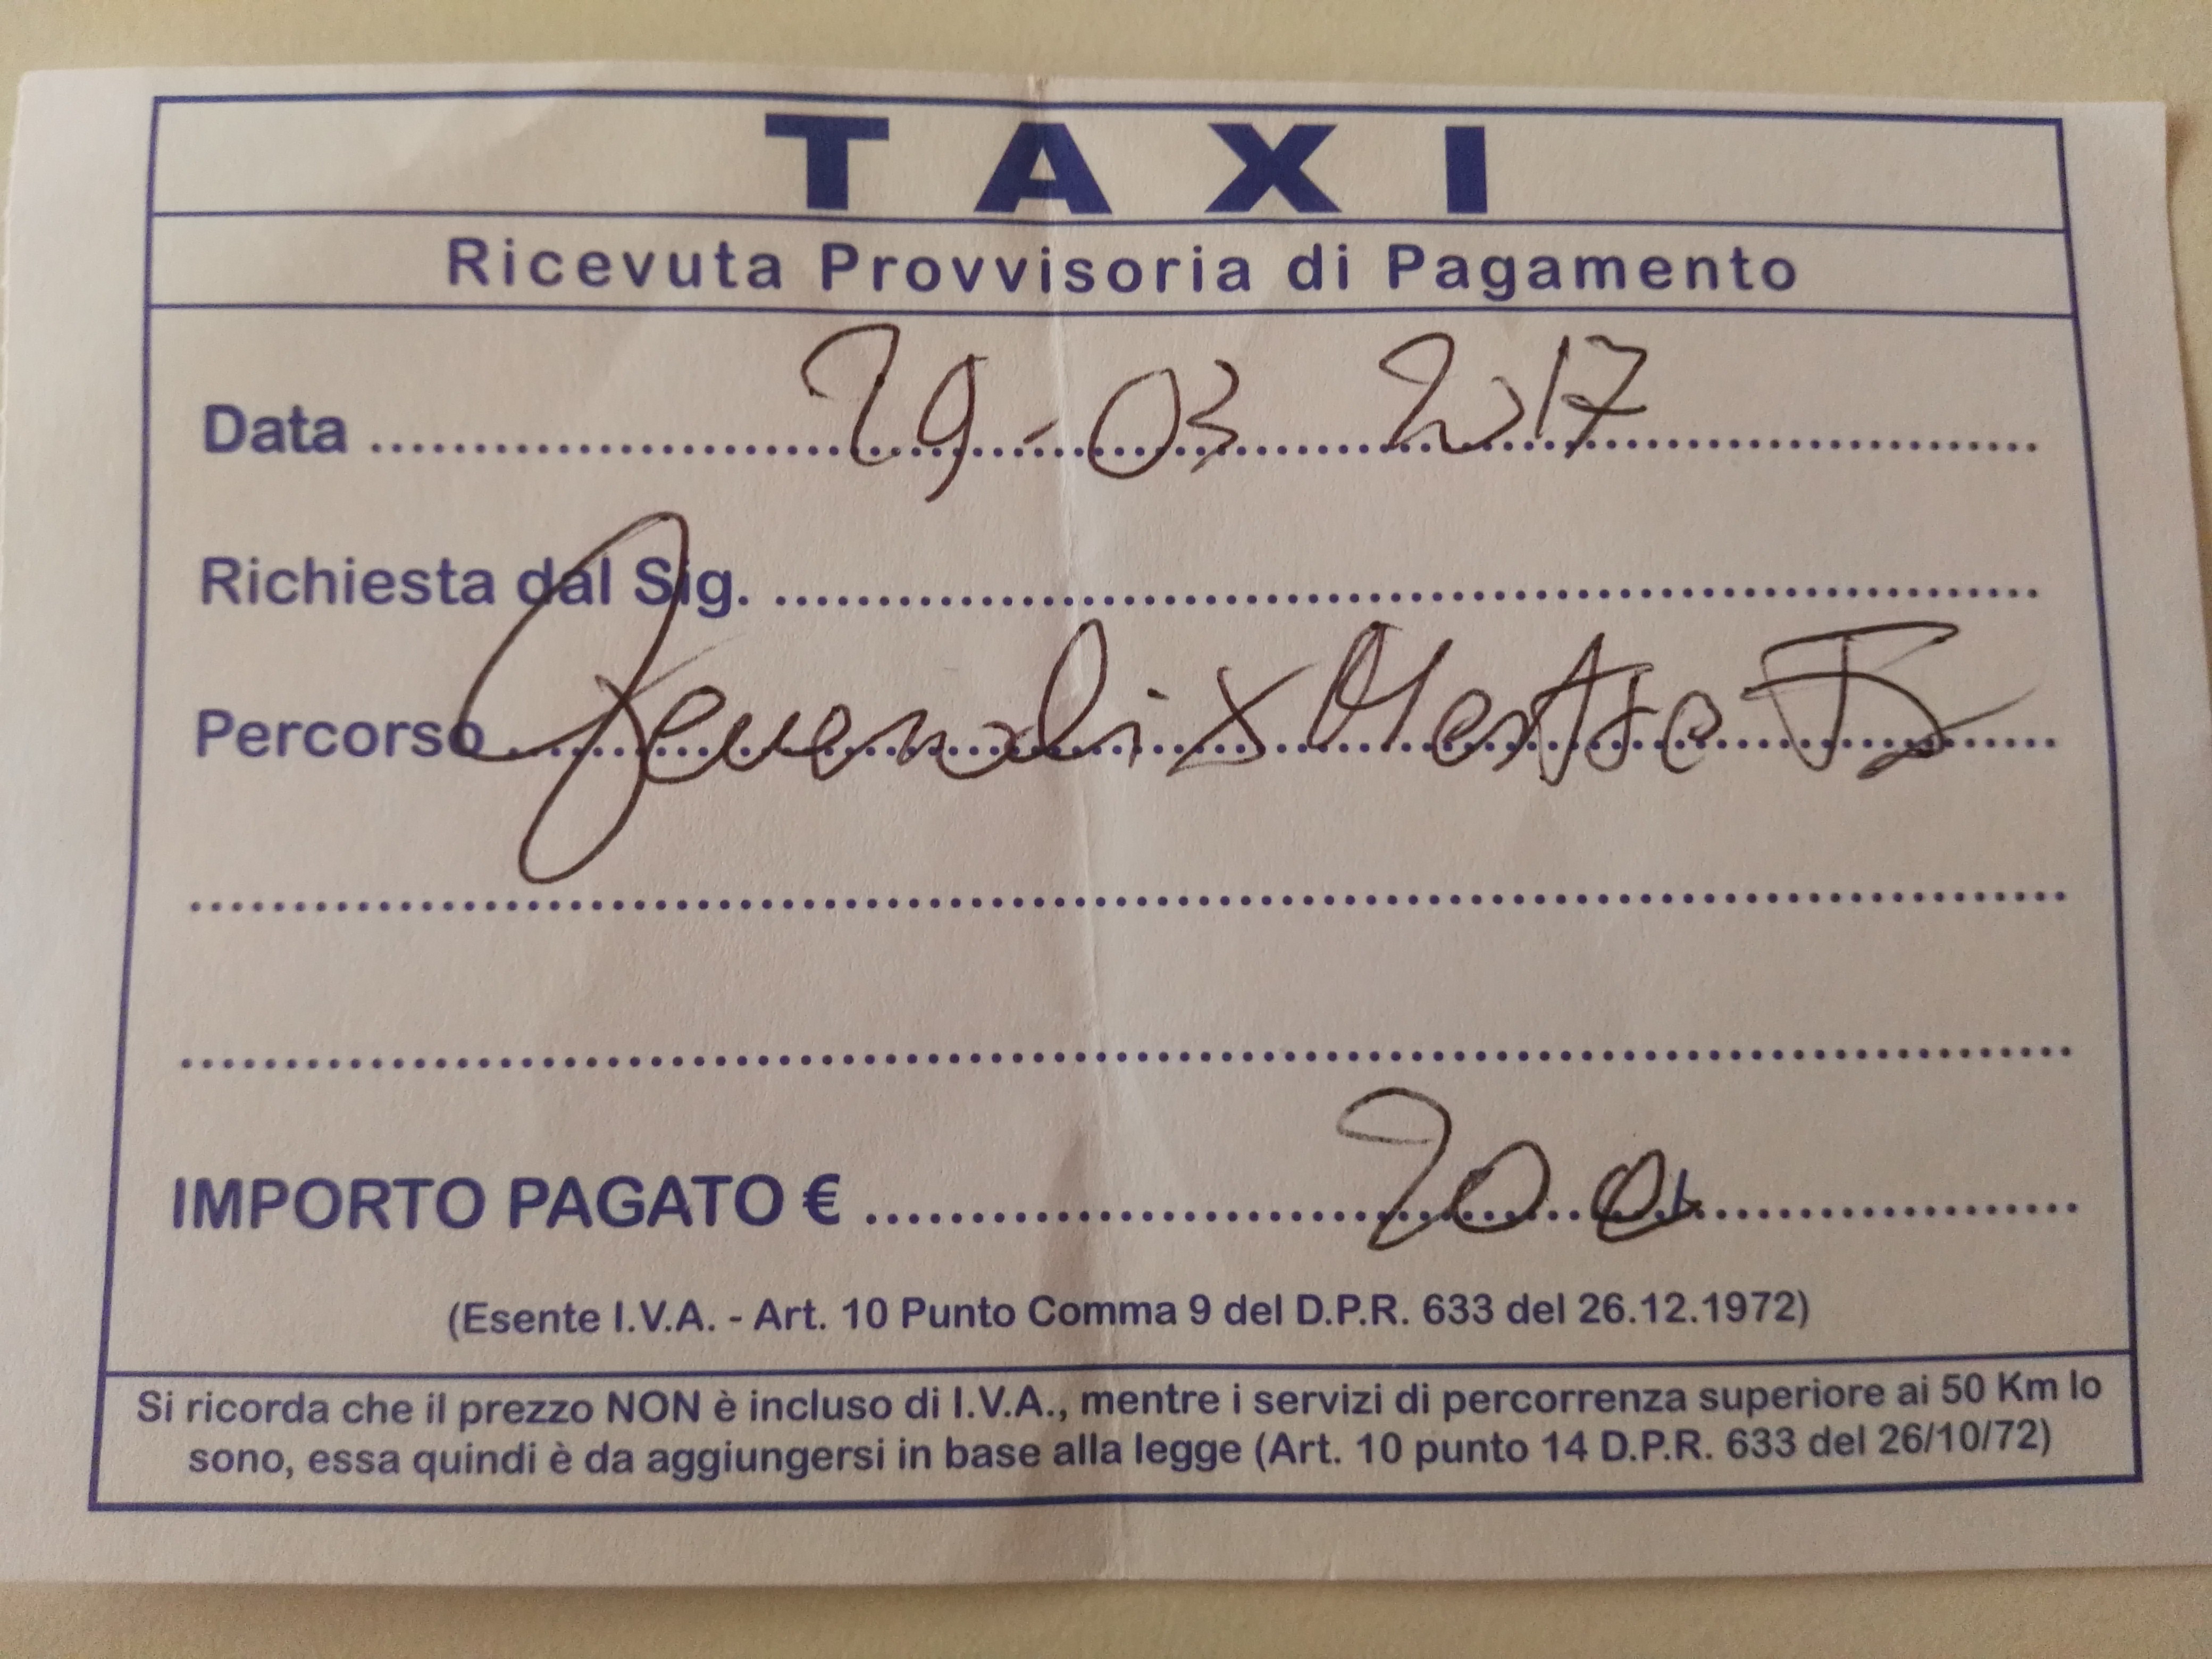 TAXI
Ricevuta Provvisoria di Pagamento
Data 29-03 2017
Richiesta dal Sig.
Percorso x Mestre
IMPORTO PAGATO € 20
(Esente I.V.A. - Art. 10 Punto Comma 9 del D.P.R. 633 del 26.12.1972)
Si ricorda che il prezzo NON è incluso di I.V.A., mentre i servizi di percorrenza superiore ai 50 Km lo
sono, essa quindi è da aggiungersi in base alla legge (Art. 10 punto 14 D.P.R. 633 del 26/10/72)